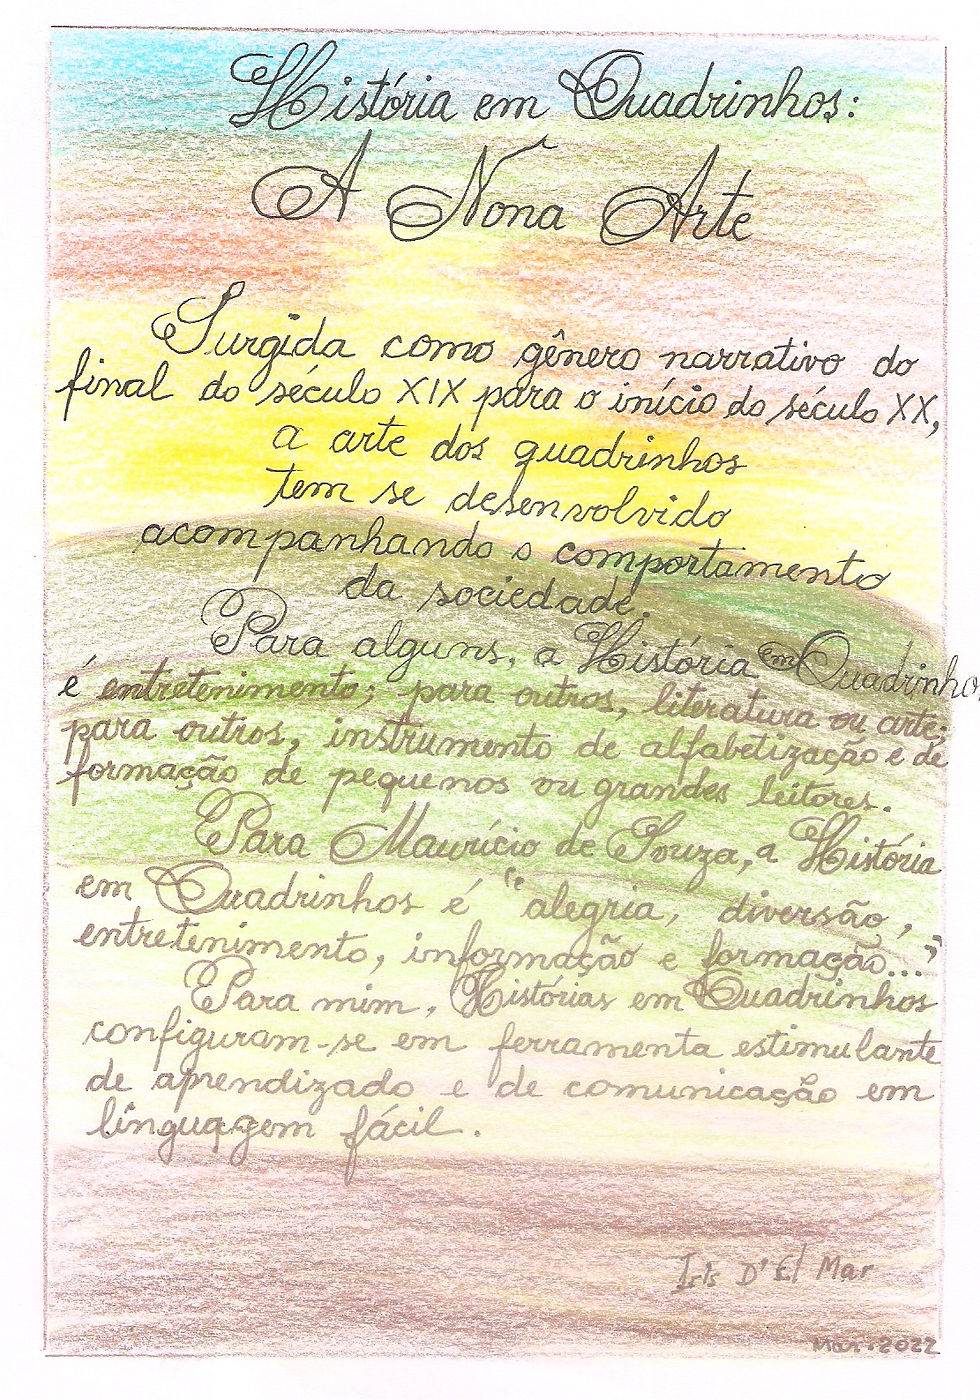 História em Quadrinhos:
A Nona Arte
Surgida como gênero narrativo do
final do século XIX para o início do século XX,
a arte dos quadrinhos
tem se desenvolvido
acompanhando o comportamento
da sociedade.
Para alguns, a História em Quadrinho
é entretenimento; para outros, literatura ou arte;
para outros, instrumento de alfabetização e de
formação de pequenos ou grandes leitores.
Para Maurício de Souza, a História
em Quadrinhos é "alegria, diversão,
entretenimento, informação e formação..."
Para mim, Histórias em Quadrinhos
configuram-se em ferramenta estimulante
de aprendizado e de comunicação em
linguagem fácil.
Iris D'El Mar
Mar. 2022